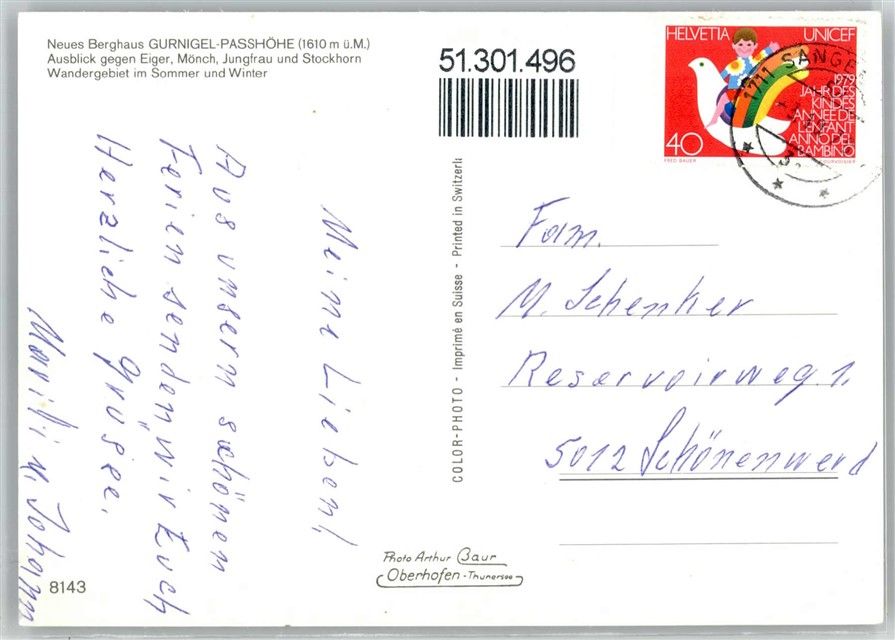 Neues Berghaus GURNIGEL-PASSHÖHE (1610 m ü.M.)
Ausblick gegen Eiger, Mönch, Jungfrau und Stockhorn
Wandergebiet im Sommer und Winter
51.301.496
HELVETIA UNICEF
1979
JAHR DES
KINDES
ANNÉE DE
L'ENFANT
ANNO DEL
BAMBINO
40
FRED BAUER COURVOISIER
1711 SANGE
Meine Lieben!
Aus unsern schönen
Ferien senden wir Euch
Herzliche Grüsse.
u. Johann
COLOR-PHOTO - Imprimé en Suisse - Printed in Switzerl
Fam.
M. Schenker
Reservoirweg 1.
5012 Schönenwerd
Photo Arthur Baur
Oberhofen - Thunersee
8143